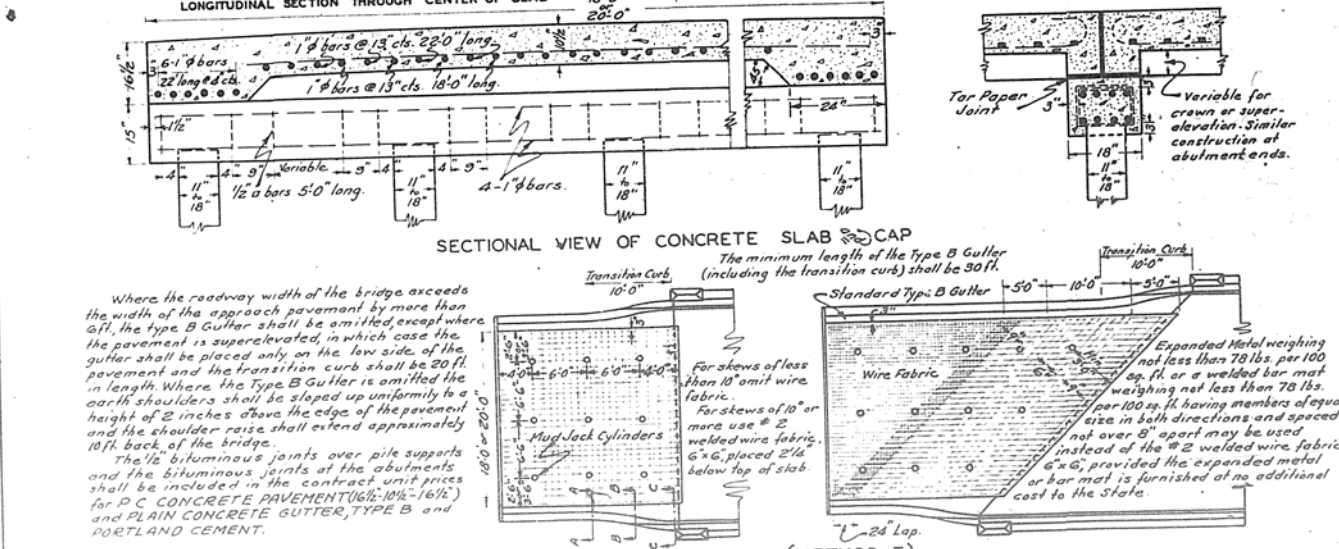 LONGITUDINAL SECTION THROUGH CENTER OF SLAB
18'-0"
or
20'-0"
16½"
15"
3"
6-1"ϕ bars
22' long @ 4" cts.
1"ϕ bars @ 13" cts. 22'-0" long.
1"ϕ bars @ 13" cts. 18'-0" long.
10½"
45°
3"
24"
1½"
4"
11"
to
18"
4"
9"
Variable
9"
4"
11"
to
18"
4"
9"
½"ϕ bars 5'-0" long.
4-1"ϕ bars.
11"
to
18"
11"
to
18"
Tar Paper
Joint
3"
3"
3"
18"
11"
to
18"
Variable for
crown or super-
elevation. Similar
construction at
abutment ends.
SECTIONAL VIEW OF CONCRETE SLAB CAP
Where the roadway width of the bridge exceeds
the width of the approach pavement by more than
6ft., the type B Gutter shall be omitted, except where
the pavement is superelevated, in which case the
gutter shall be placed only on the low side of the
pavement and the transition curb shall be 20 ft.
in length. Where the Type B Gutter is omitted the
earth shoulders shall be sloped up uniformly to a
height of 2 inches above the edge of the pavement
and the shoulder raise shall extend approximately
10ft. back of the bridge.
The ½" bituminous joints over pile supports
and the bituminous joints at the abutments
shall be included in the contract unit prices
for P C CONCRETE PAVEMENT (16½-10½-16½")
and PLAIN CONCRETE GUTTER, TYPE B and
PORTLAND CEMENT.
Transition Curb
10'-0"
3"
18'-0" or 20'-0"
4'-0"
6'-0"
6'-0"
4'-0"
Mud Jack Cylinders
A
B
C
A
B
C
For skews of less
than 10° omit wire
fabric.
For skews of 10° or
more use #2
welded wire fabric,
6"x6", placed 2¼"
below top of slab.
The minimum length of the Type B Gutter
(including the transition curb) shall be 30 ft.
Standard Type B Gutter
5'-0"
10'-0"
5'-0"
Transition Curb
10'-0"
3"
Wire Fabric
24" Lap.
Expanded Metal weighing
not less than 78 lbs. per 100
sq. ft. or a welded bar mat
weighing not less than 78 lbs.
per 100 sq. ft. having members of equal
size in both directions and spaced
not over 8" apart may be used
instead of the #2 welded wire fabric
6"x6", provided the expanded metal
or bar mat is furnished at no additional
cost to the State.